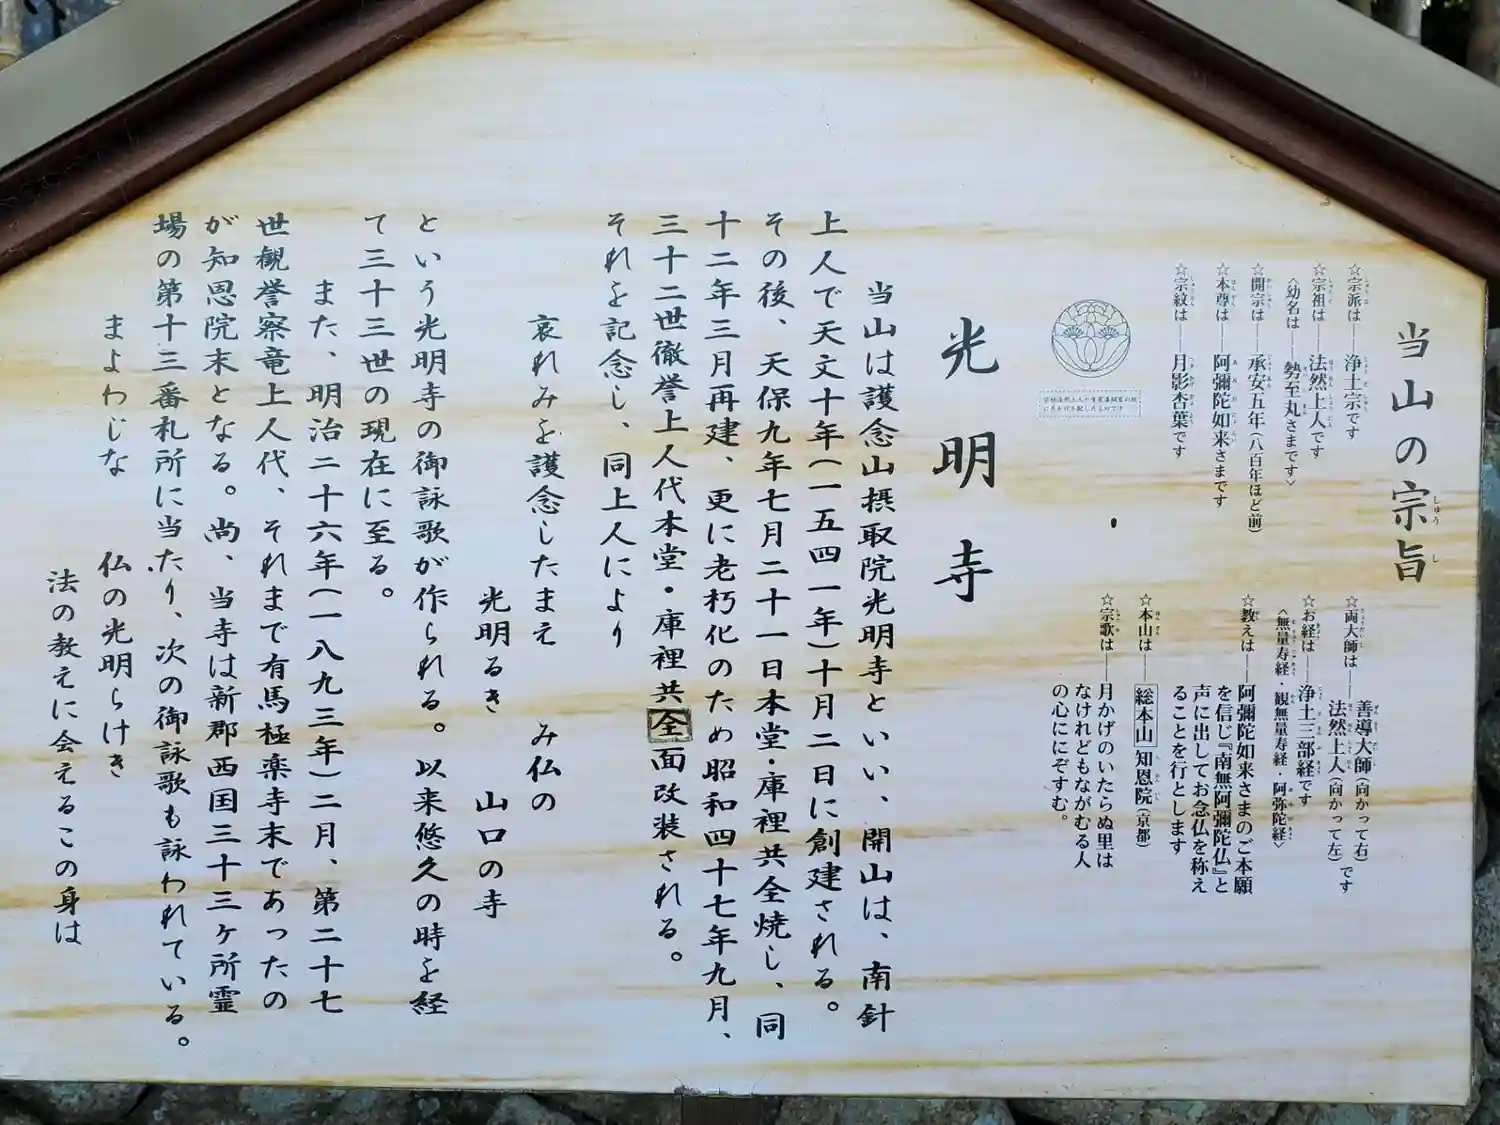 当山の宗旨
☆宗派は――浄土宗です
☆宗祖は――法然上人です
〈幼名は――勢至丸さまです〉
☆開宗は――承安五年（八百年ほど前）
☆本尊は――阿彌陀如来さまです
☆宗紋は――月影杏葉です
☆両大師は――善導大師（向かって右）
法然上人（向かって左）です
☆お経は――浄土三部経です
〈無量寿経・観無量寿経・阿弥陀経〉
☆教えは――阿彌陀如来さまのご本願
を信じ『南無阿彌陀仏』と
声に出してお念仏を称え
ることを行とします
☆本山は――総本山 知恩院（京都）
☆宗歌は――月かげのいたらぬ里は
なけれどもながむる人
の心ににぞすむ。
光明寺
当山は護念山摂取院光明寺といい、開山は、南針
上人で天文十年（一五四一年）十月二日に創建される。
その後、天保九年七月二十一日本堂・庫裡共全焼し、同
十二年三月再建、更に老朽化のため昭和四十七年九月、
三十二世徹誉上人代本堂・庫裡共全面改装される。
それを記念し、同上人により
哀れみを護念したまえ　み仏の
光明るき　山口の寺
という光明寺の御詠歌が作られる。以来悠久の時を経
て三十三世の現在に至る。
また、明治二十六年（一八九三年）二月、第二十七
世観誉察竜上人代、それまで有馬極楽寺末であったの
が知恩院末となる。尚、当寺は新郡西国三十三ヶ所霊
場の第十三番札所に当たり、次の御詠歌も詠われている。
まよわじな　仏の光明らけき
法の教えに会えるこの身は